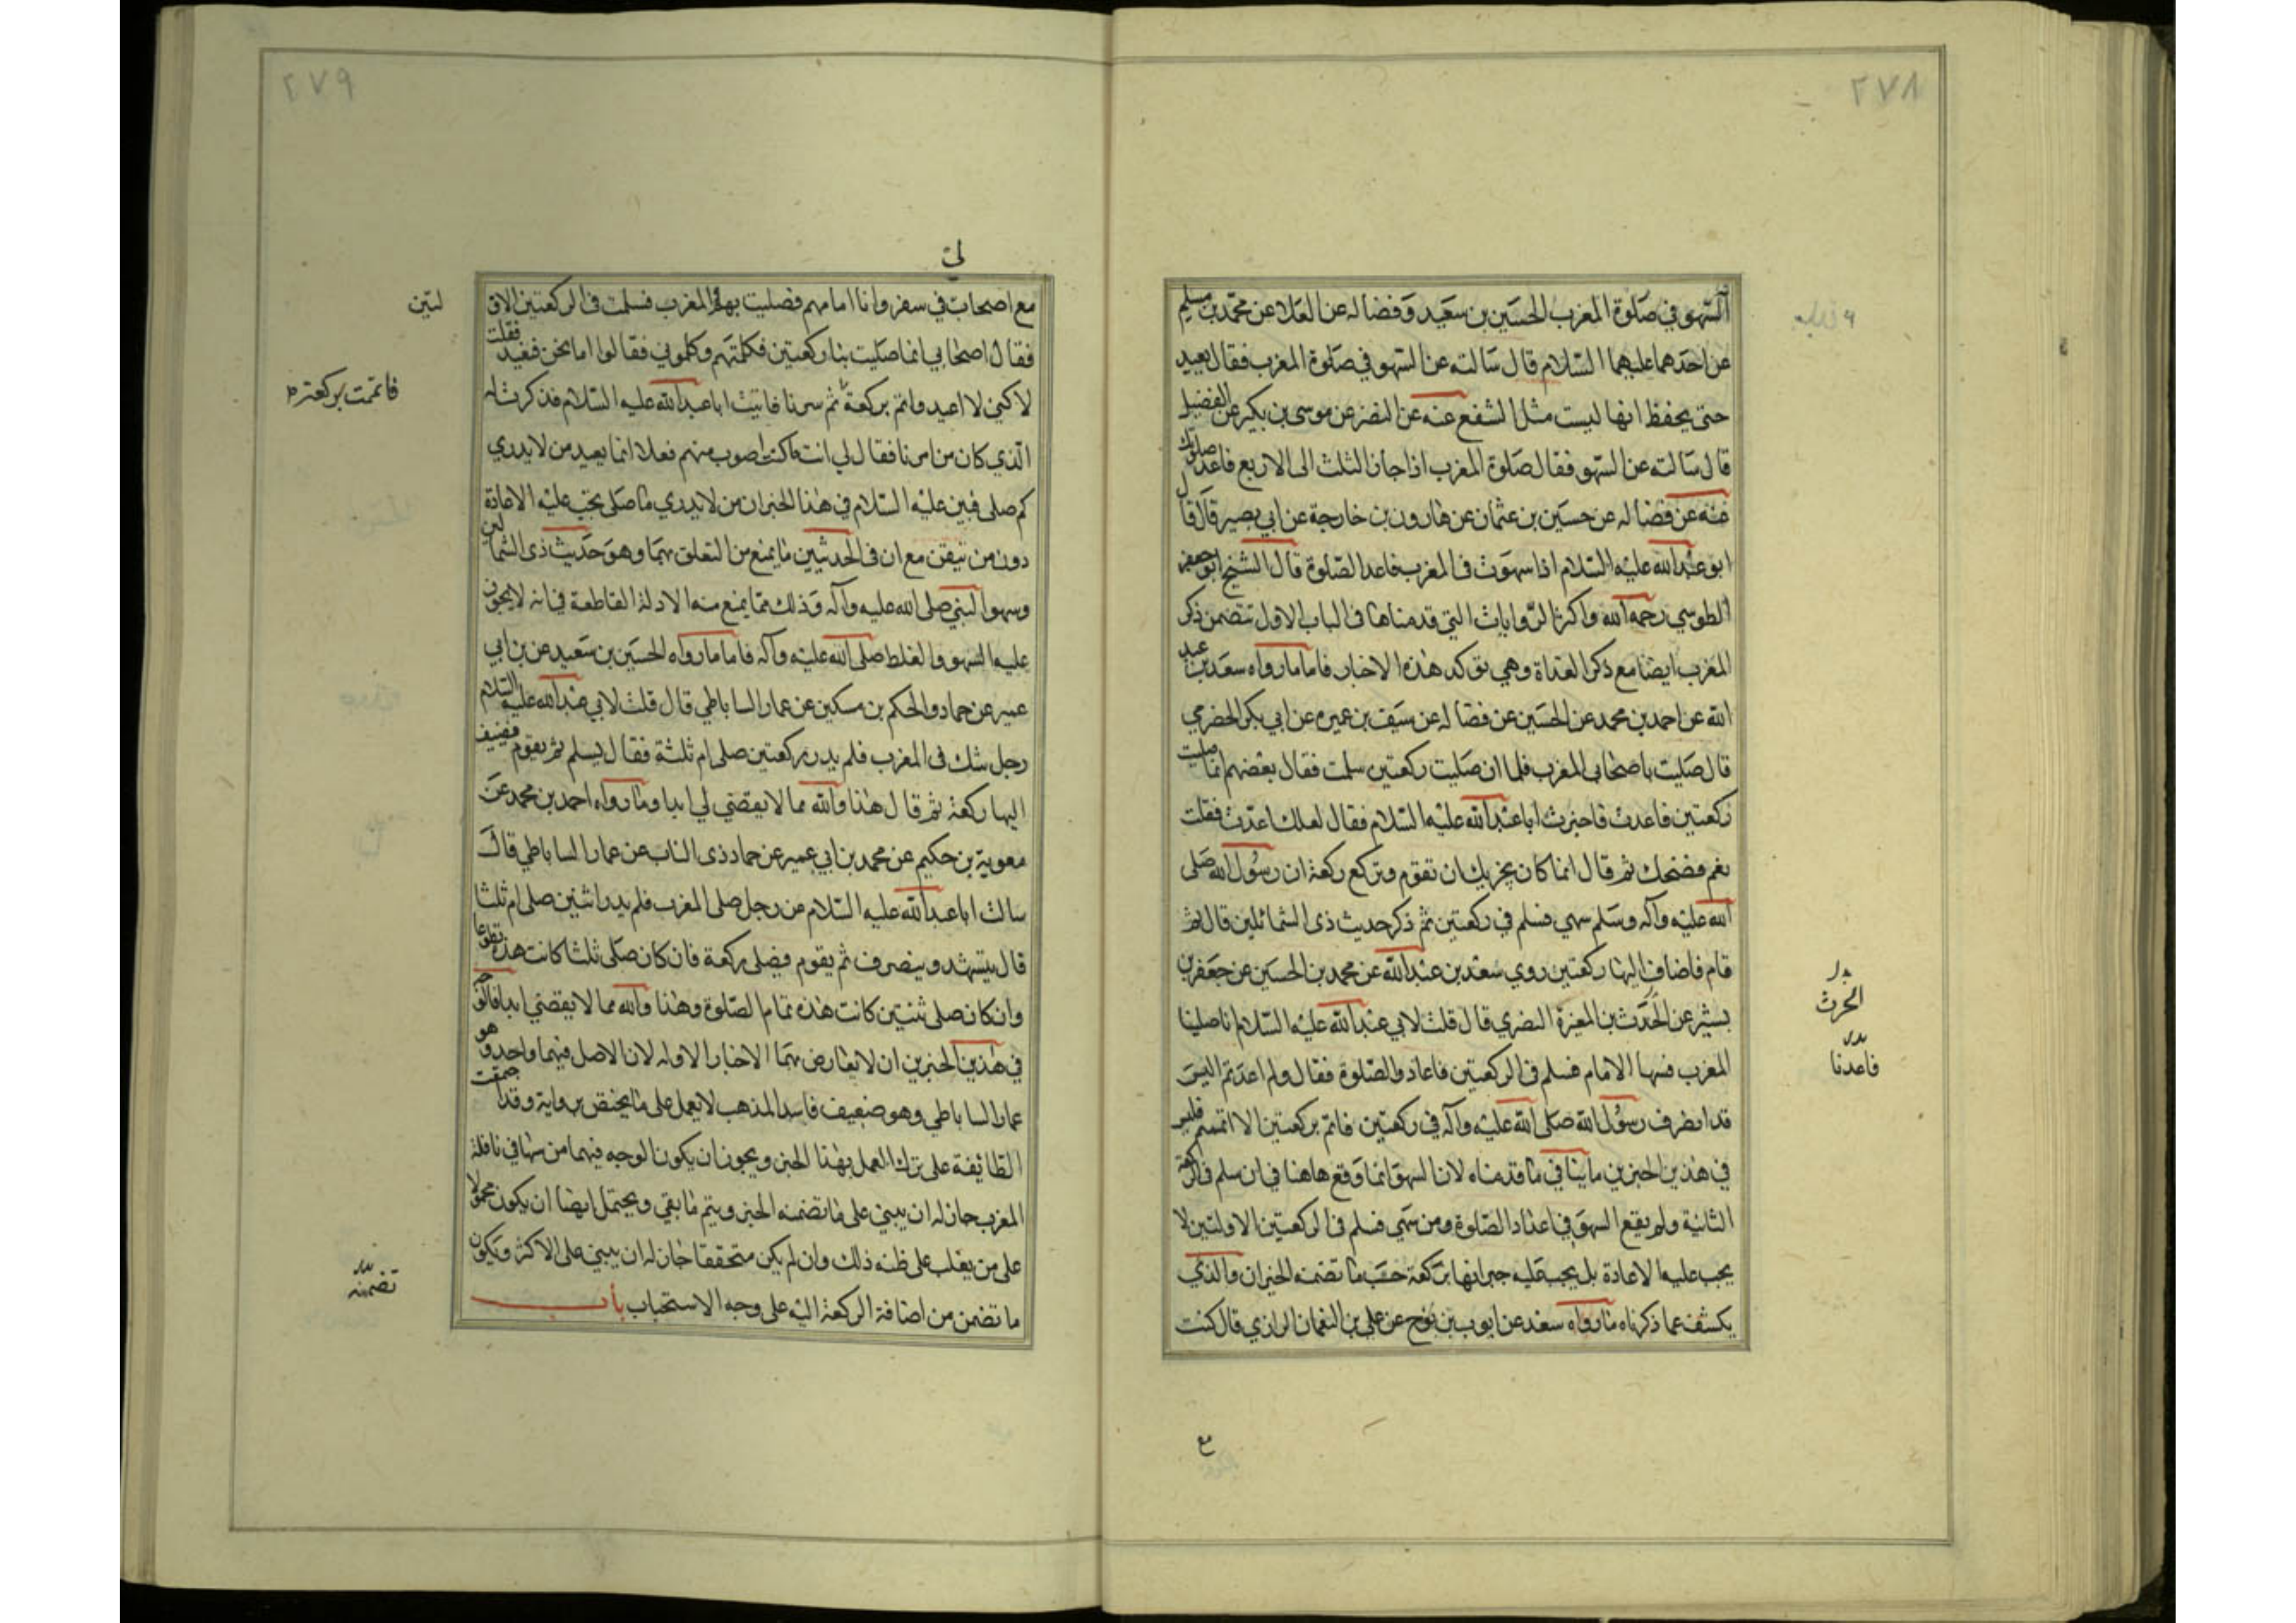 ٢٧٨
السهو في صلوة المغرب الحسين بن سعيد وفضاله عن العلا عن محمد بن مسلم
عن احدهما عليهما السلام قال سالته عن السهو في صلوة المغرب فقال يعيد
حتى يحفظ انها ليست مثل الشفع عنه عن النضر عن موسى بن بكير عن الفضيل
قال سالته عن السهو فقال صلوة المغرب اذا جاز الثلث الى الاربع فاعد صلوتك
عنه عن فضاله عن حسين بن عثمان عن هارون بن خارجة عن ابي بصير قال قال
ابو عبد الله عليه السلام اذا سهوت في المغرب فاعد الصلوة قال الشيخ ابو جعفر
الطوسي رحمه الله واكثر الروايات التي قدمناها في الباب الاول تتضمن ذكر
المغرب ايضا مع ذكر الغداة وهي تؤكد هذه الاخبار فاما ما رواه سعد بن عبد
الله عن احمد بن محمد عن الحسين عن فضاله عن سيف بن عميره عن ابي بكر الحضرمي
قال صليت باصحابى المغرب فلما ان صليت ركعتين سلمت فقال بعضهم انما صليت
ركعتين فاعدت فاخبرت ابا عبد الله عليه السلام فقال لعلك اعدت فقلت
نعم فضحك ثم قال انما كان يجزيك ان تقوم وتركع ركعة ان رسول الله صلى
الله عليه وآله وسلم سهى فسلم في ركعتين ثم ذكر حديث ذى الشمائلين قال ثم
قام فاضاف اليها ركعتين روي سعد بن عبد الله عن محمد بن الحسين عن جعفر بن
بشير عن الحدث بن المغيرة النضري قال قلت لابي عبد الله عليه السلام انا صلينا
الحرث
المغرب فسها الامام فسلم في الركعتين فاعادوا الصلوة فقال ولم اعدتم اليس
فاعدنا
قد انصرف رسول الله صلى الله عليه وآله في ركعتين فاتم بركعتين الا اتممتم فليس
في هذين الخبرين ما ينافي ما قدمناه لان السهو انما وقع هاهنا في ان سلم في الركعة
الثانية ولم يقع السهو في اعداد الصلوة ومن سهى فسلم في الركعتين الاولتين لا
يجب عليه الاعادة بل يجب عليه جبرانها بركعة حسب ما تضمنه الخبران والذي
يكشف عما ذكرناه ما رواه سعد عن ايوب بن نوح عن علي بن النعمان الرازي قال كنت
مع
٢٧٩
مع اصحاب في سفر وانا امامهم فصليت بهم المغرب فسلمت في الركعتين الاو
لتين
فقال اصحابي انما صليت بنا ركعتين فكلمتهم وكلموني فقالوا اما نحن فنعيد فقلت
لاكنى لا اعيد واتم بركعة ثم سرنا فاتيت ابا عبد الله عليه السلام فذكرت له
فاتممت بركعة
الذي كان من امرنا فقال لي انت كنت اصوب منهم فعلا انما يعيد من لا يدري
كم صلى فبين عليه السلام في هذا الخبر ان من لا يدري ما صلى يجب عليه الاعادة
دون من تيقن مع ان في الحديثين ما يمنع من التعلق بهما وهو حديث ذى الشمالين
وسهو النبي صلى الله عليه وآله وذلك مما يمنع منه الادلة القاطعة في انه لا يجوز
عليه السهو والغلط صلى الله عليه وآله فاما ما رواه الحسين بن سعيد عن بن ابي
عمير عن حماد والحكم بن مسكين عن عمار الساباطي قال قلت لابي عبد الله عليه السلام
رجل شك في المغرب فلم يدر ركعتين صلى ام ثلثة فقال يسلم ثم يقوم فيضيف
اليها ركعة ثم قال هذا والله مما لا يقضي لي ابدا وما رواه احمد بن محمد عن
معوية بن حكيم عن محمد بن ابي عمير عن حماد ذى الناب عن عمار الساباطي قال
سالت ابا عبد الله عليه السلام عن رجل صلى المغرب فلم يدر اثنين صلى ام ثلثا
قال يتشهد وينصرف ثم يقوم فيصلى ركعة فان كان صلى ثلثا كانت هذه تطوعا
وان كان صلى ثنتين كانت هذه تمام الصلوة وهذا والله مما لا يقضي ابدا فالوجه
في هذين الخبرين ان لا يعارض بهما الاخبار الاوله لان الاصل فيهما واحد وهو
عمار الساباطي وهو ضعيف فاسد المذهب لا يعمل على ما يختص بروايته وقد اجتمعت
الطائفة على ترك العمل بهذا الخبر ويجوز ان يكون الوجه فيهما من سها في نافلة
المغرب جاز له ان يبني على ما تضمنه الخبر ويتم ما بقي ويحتمل ايضا ان يكون محمولا
على من يغلب على ظنه ذلك وان لم يكن متحققا جاز له ان يبني على الاكثر ويكون
ما تضمن من اضافة الركعة اليه على وجه الاستحباب باب
تضمنه